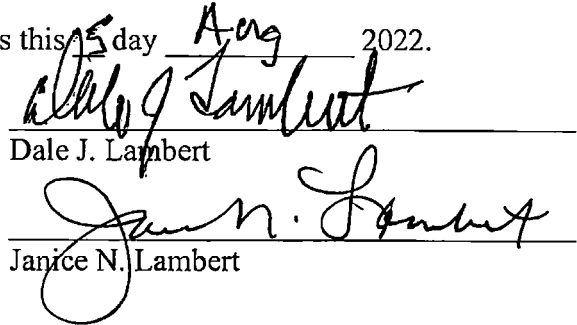 s this 5 day Aug 2022.
Dale J Lambert
Dale J. Lambert
Janice N. Lambert
Janice N. Lambert